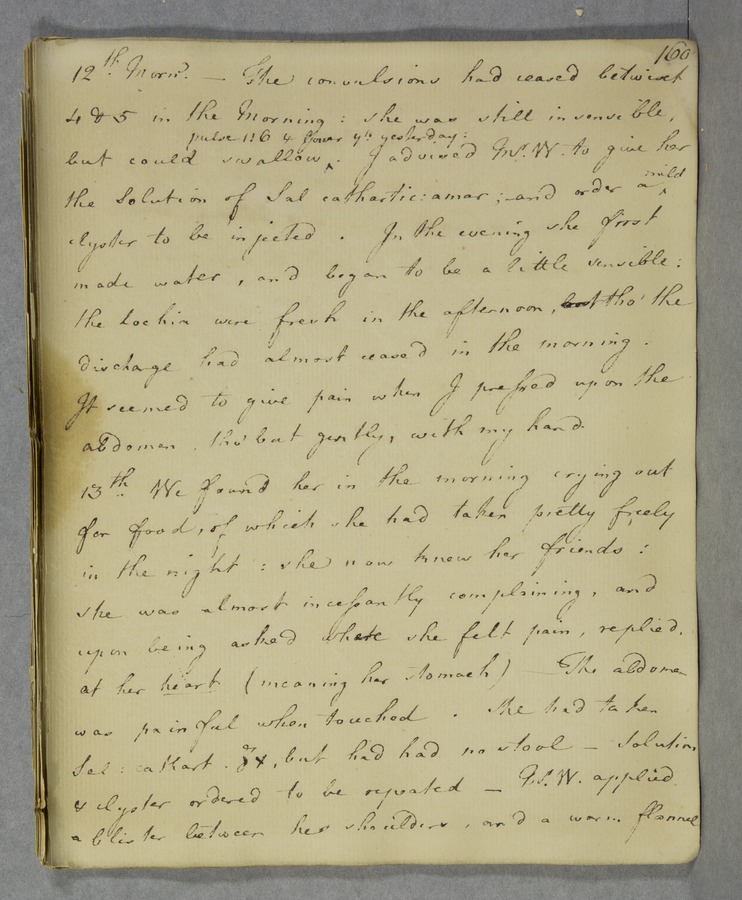 160
12th. Morng. — The convulsions had ceased betwixt
4 & 5 in the Morning : she was still insensible,
pulse 116 4 fewer yn. yesterday :
but could swallow ‸. I advised Mr. W. to give her
the Solution of Sal cathartic: amar ; and order a ‸ mild
clyster to be injected . In the evening she first
made water , and began to be a little sensible :
the Lochia were fresh in the afternoon, but tho' the
discharge had almost ceased in the morning .
It seemed to give pain when I pressed upon the
abdomen , tho' but gently, with my hand.
13th. We found her in the morning crying out
for food, of which she had taken pretty freely
in the night : she now knew her friends :
she was almost incessantly complaining, and
upon being asked where she felt pain, replied,
at her heart (meaning her stomach) — The abdomen
was painful when touched . She had taken
Sal : cathart . ℥x, but had had no stool — Solution
& clyster ordered to be repeated — Mr. W. applied
a blister between her shoulders , and a warm flannel